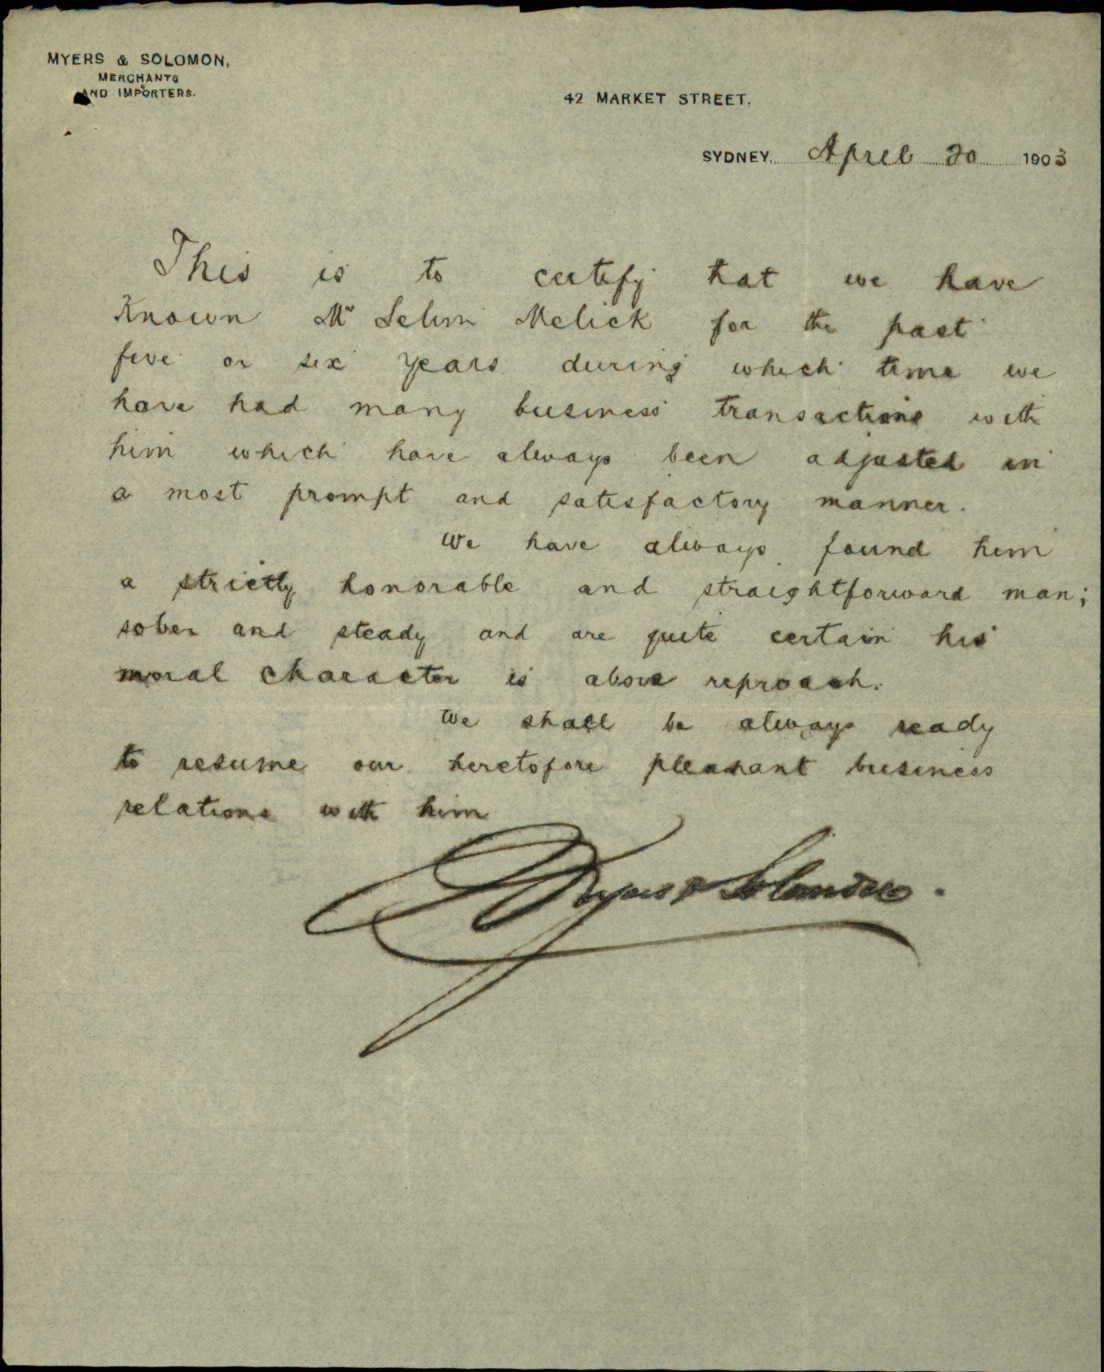 MYERS & SOLOMON,
MERCHANTS
AND IMPORTERS.
42 MARKET STREET.
SYDNEY, April 20 1903
This is to certify that we have
Known Mr Selim Melick for the past
five or six years during which time we
have had many business transactions with
him which have always been adjusted in
a most prompt and satisfactory manner.
We have always found him
a strictly honorable and straightforward man;
sober and steady and are quite certain his
moral character is above reproach.
We shall be always ready
to resume our heretofore pleasant business
relations with him
Myers & Solomon.